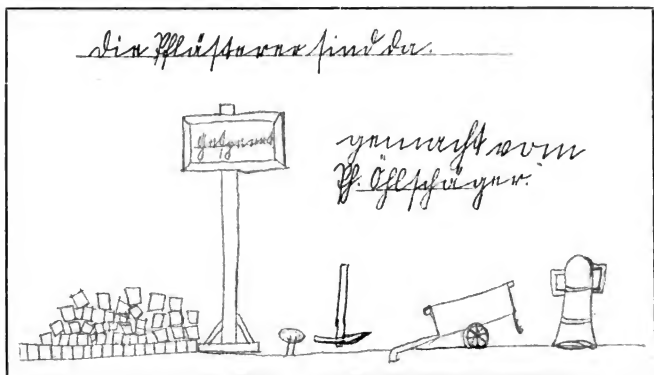 Die Pflästerer sind da.
Gesperrt
gemacht vom
Ph. Öhlschäger.